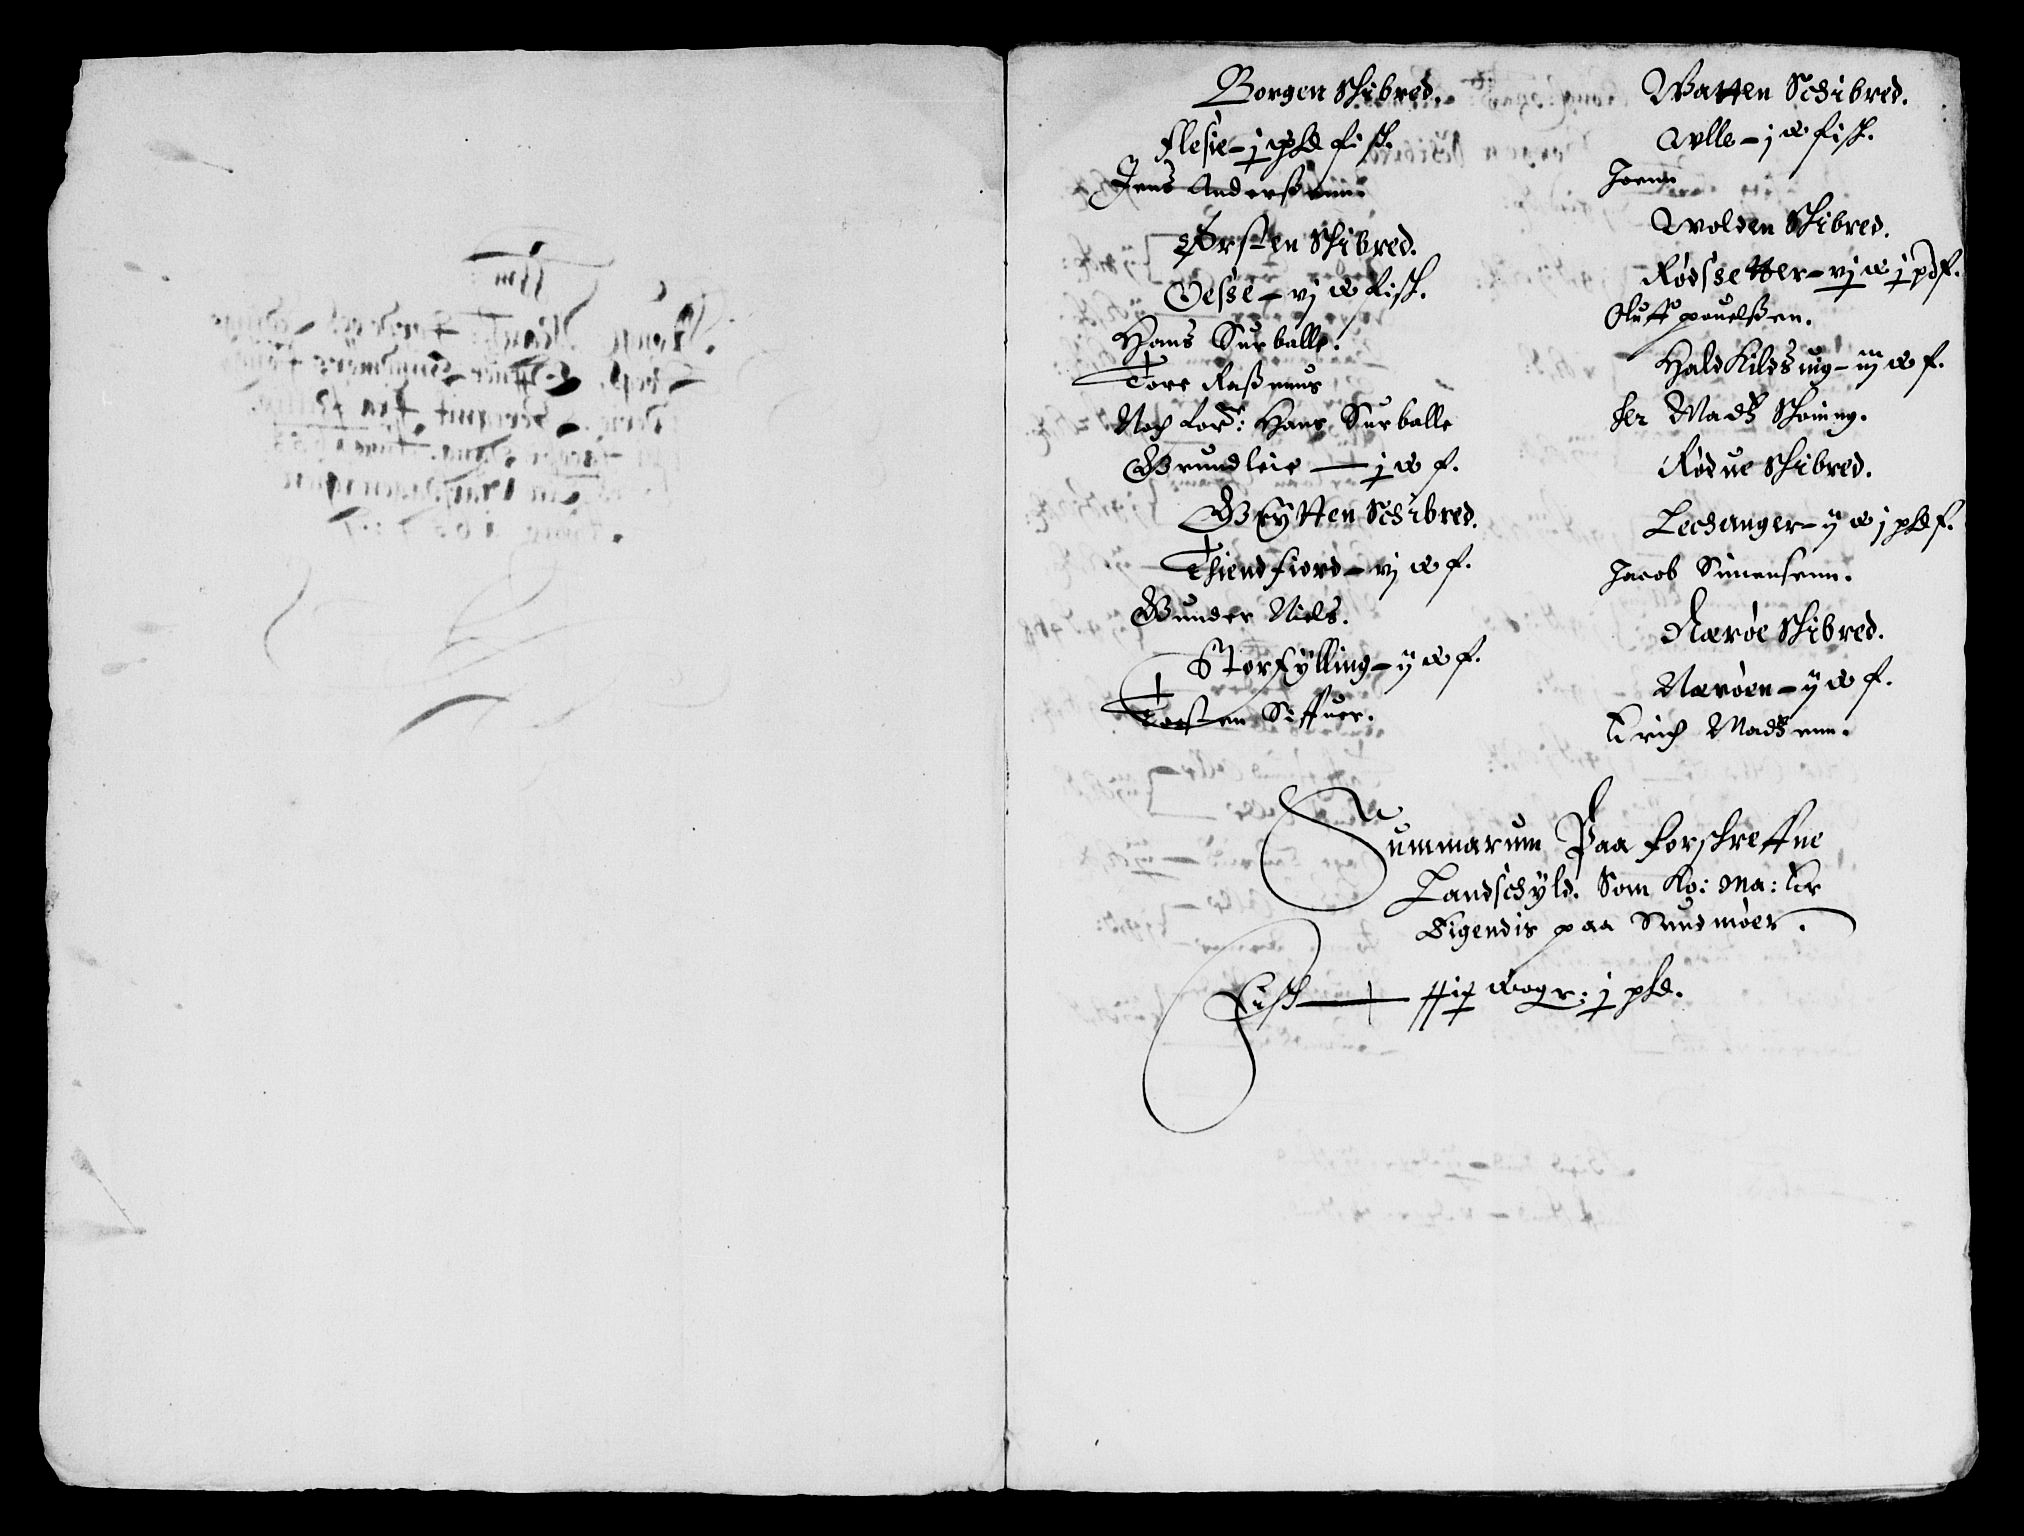 Borgen Skibred.
Flesie - j pkd fisk.
Jens Anderssenn.
Ørsten Skibred.
Gesse - vj w fisk.
Hans Surballe.
Tore Rassmus
Noch for: Hans Surballe
Grundleie — j w f.
Grytten Schibred.
Thiendfiord - vj w f.
Gunder Niels.
Storfylling - ij w f.
Torsten Siffuer.
Watten Schibred.
Wlle - j w fisk.
Joenn
Wolden Skibred.
Rødssetter - vj w j pd f.
Oluff pouelssen.
Haldkildsuig - iij w f.
her Madtz Skoning.
Rødue Skibred.
Lechanger - ij w j pkd f.
Jacob Simensenn.
Nærøe Skibred.
Nærøen - ij w f.
Erich Madtzenn.
Summarum Paa forskreffne
Landschyld. Som Ko: Ma: Er
Eigendis paa Sundmøer.
Fisk — wogr: j pkd.